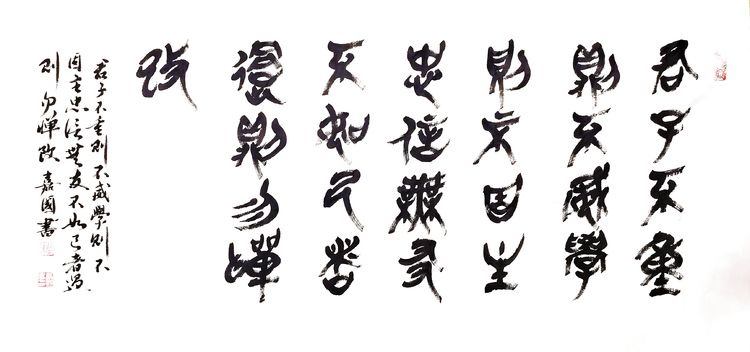 君子不重
則不威學
則不固主
忠信無友
不如己者
過則勿憚
改
君子不重則不威學則不
固主忠信無友不如己者過
則勿憚改 嘉國書